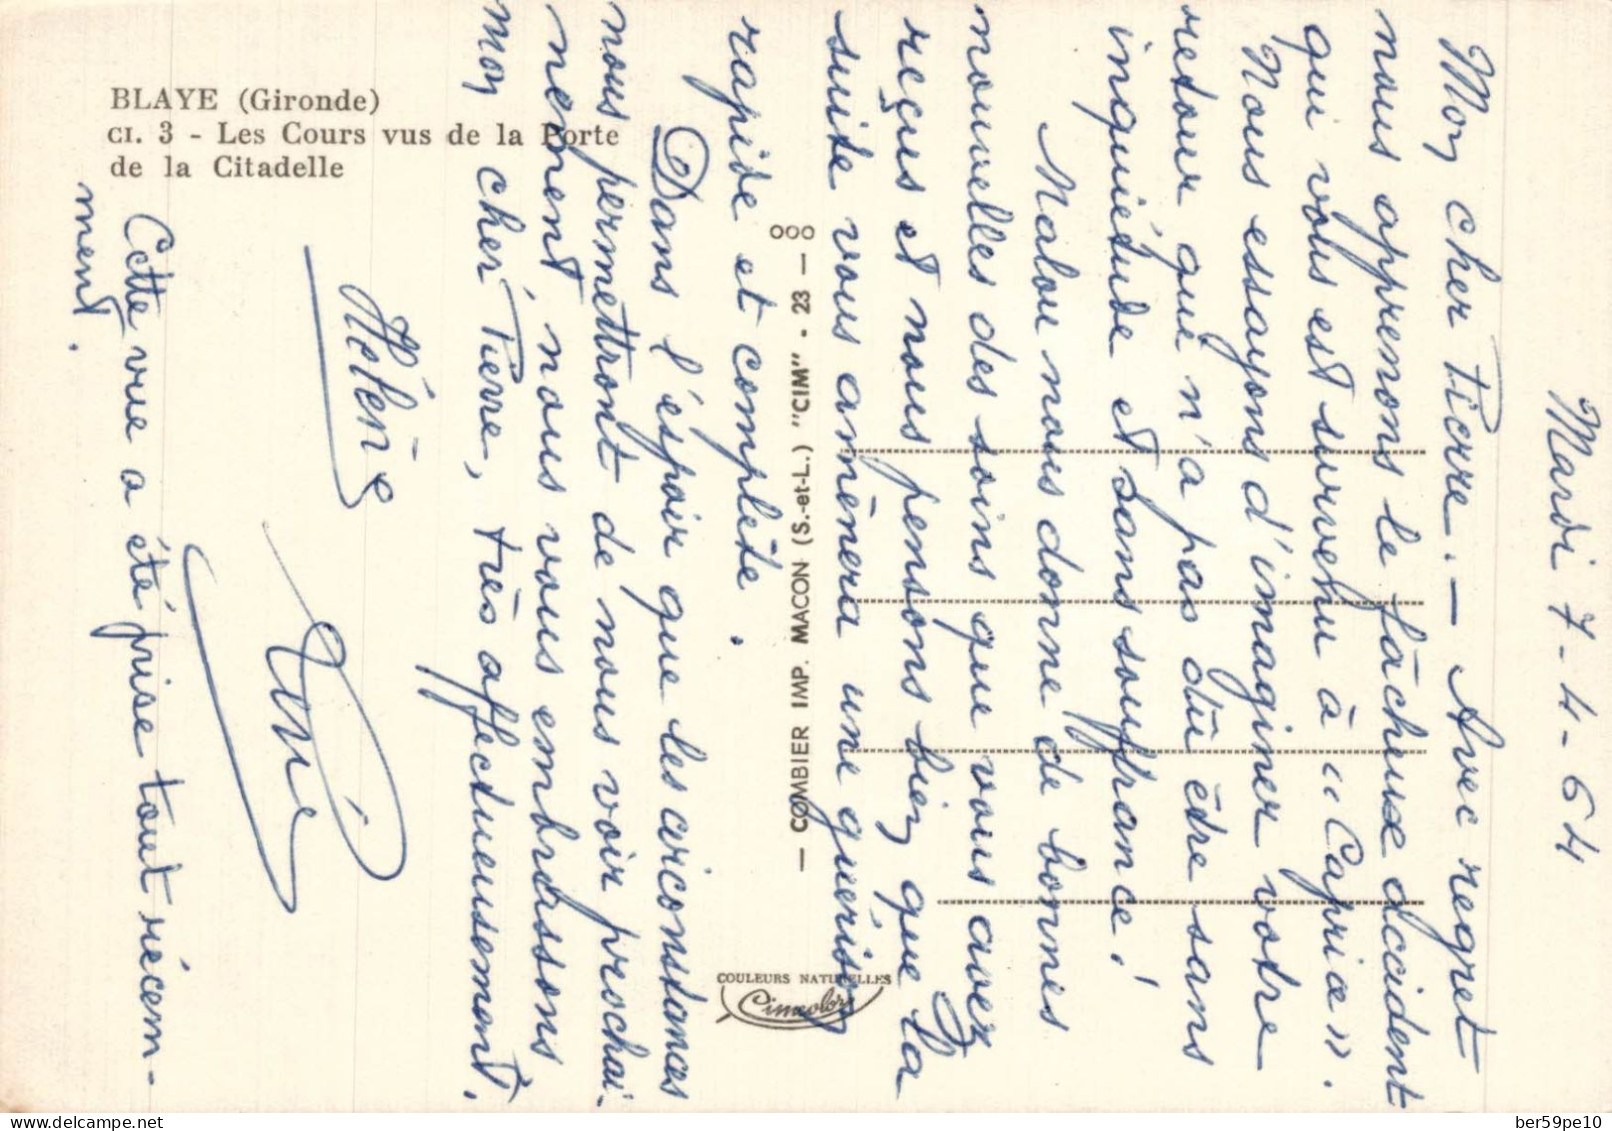 Mardi 7-4-64
Mon cher Pierre. — Avec regret
nous apprenons le fâcheux accident
qui vous est survenu à "Caprice".
Nous essayons d'imaginer votre
retour qui n'a pas dû être sans
inquiétude et sans souffrance!
Malou nous donne de bonnes
nouvelles des soins que vous avez
reçus et nous pensons bien que la
suite vous amènera une guérison
rapide et complète.
Dans l'espoir que les circonstances
nous permettront de nous voir prochai-
nement, nous vous embrassons
mon cher Pierre, très affectueusement.
Hélène
Cette vue a été prise tout récem-
ment.
BLAYE (Gironde)
CI. 3 - Les Cours vus de la Porte
de la Citadelle
— COMBIER IMP. MACON (S.-et-L.) "CIM" - 23 — ooo
COULEURS NATURELLES
Cimcolor
delcampe.net
ber59pe10